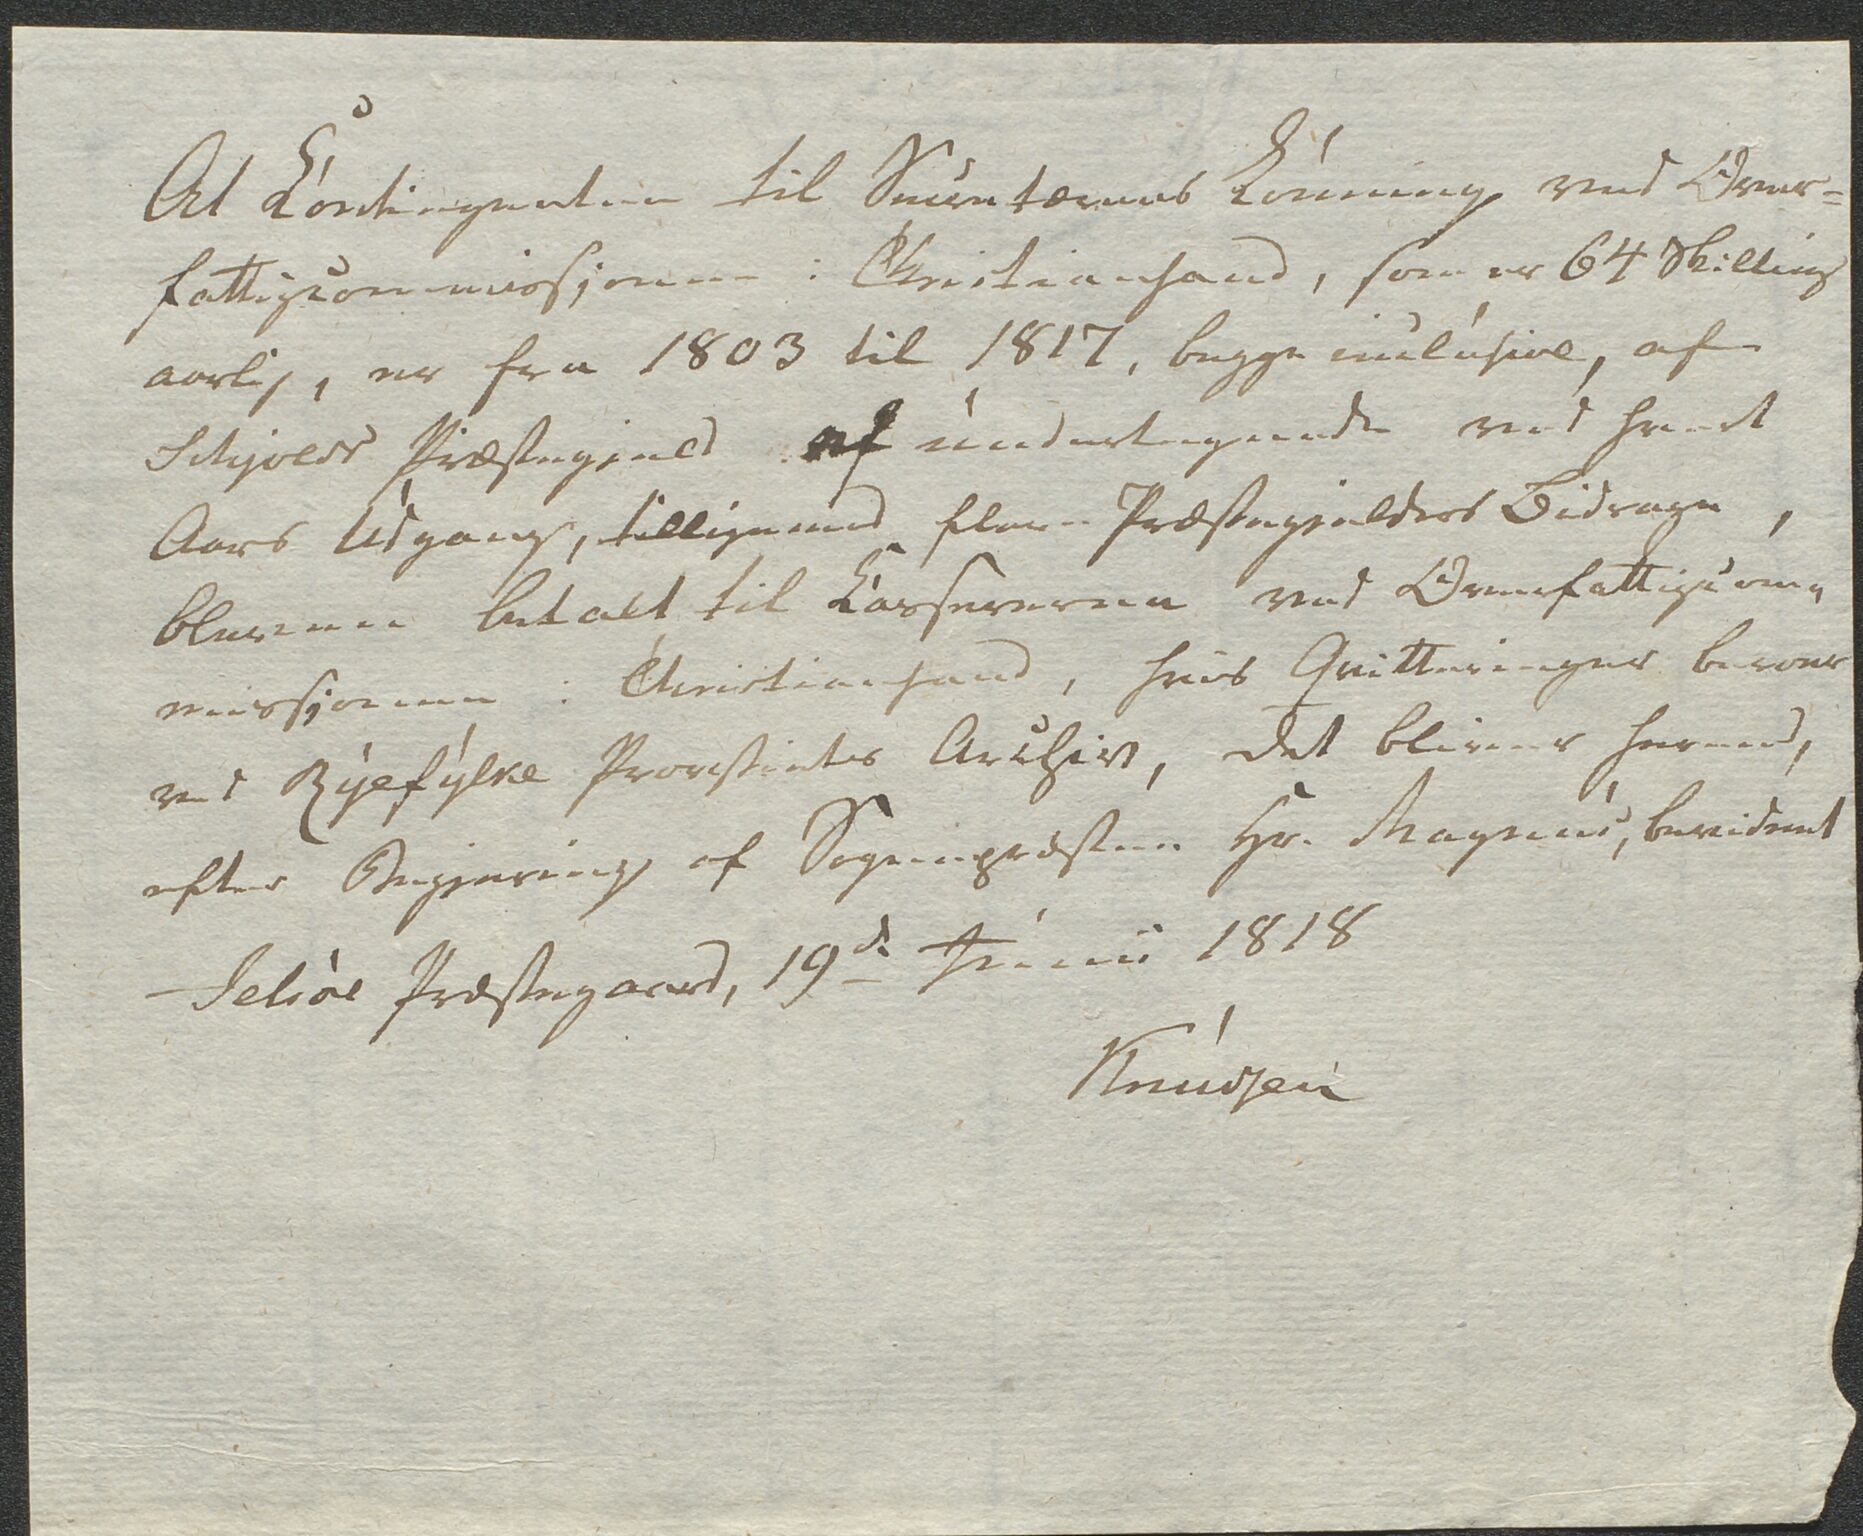 At Contingenten til Secretærens Lönning ved Over-
fattigcommissjonen i Christiansand, som er 64 Skilling
aarlig, er fra 1803 til 1817, begge inclusive, af
Schjolds Præstegjeld af undertegnede ved hvert
Aars Udgang, tilligemed flere Præstegjelders Bidrage,
bleven betalt til Cassererne ved Overfattigcom-
missjonen i Christiansand, hvis Qvitteringer beroer
ved Ryefylke Provsties Archiv, det bliver herved,
efter Begjering af Sognepræsten Hr. Magnus, bevidnet
Jelsöe Præstegaard, 19de Junii 1818
Knudsen